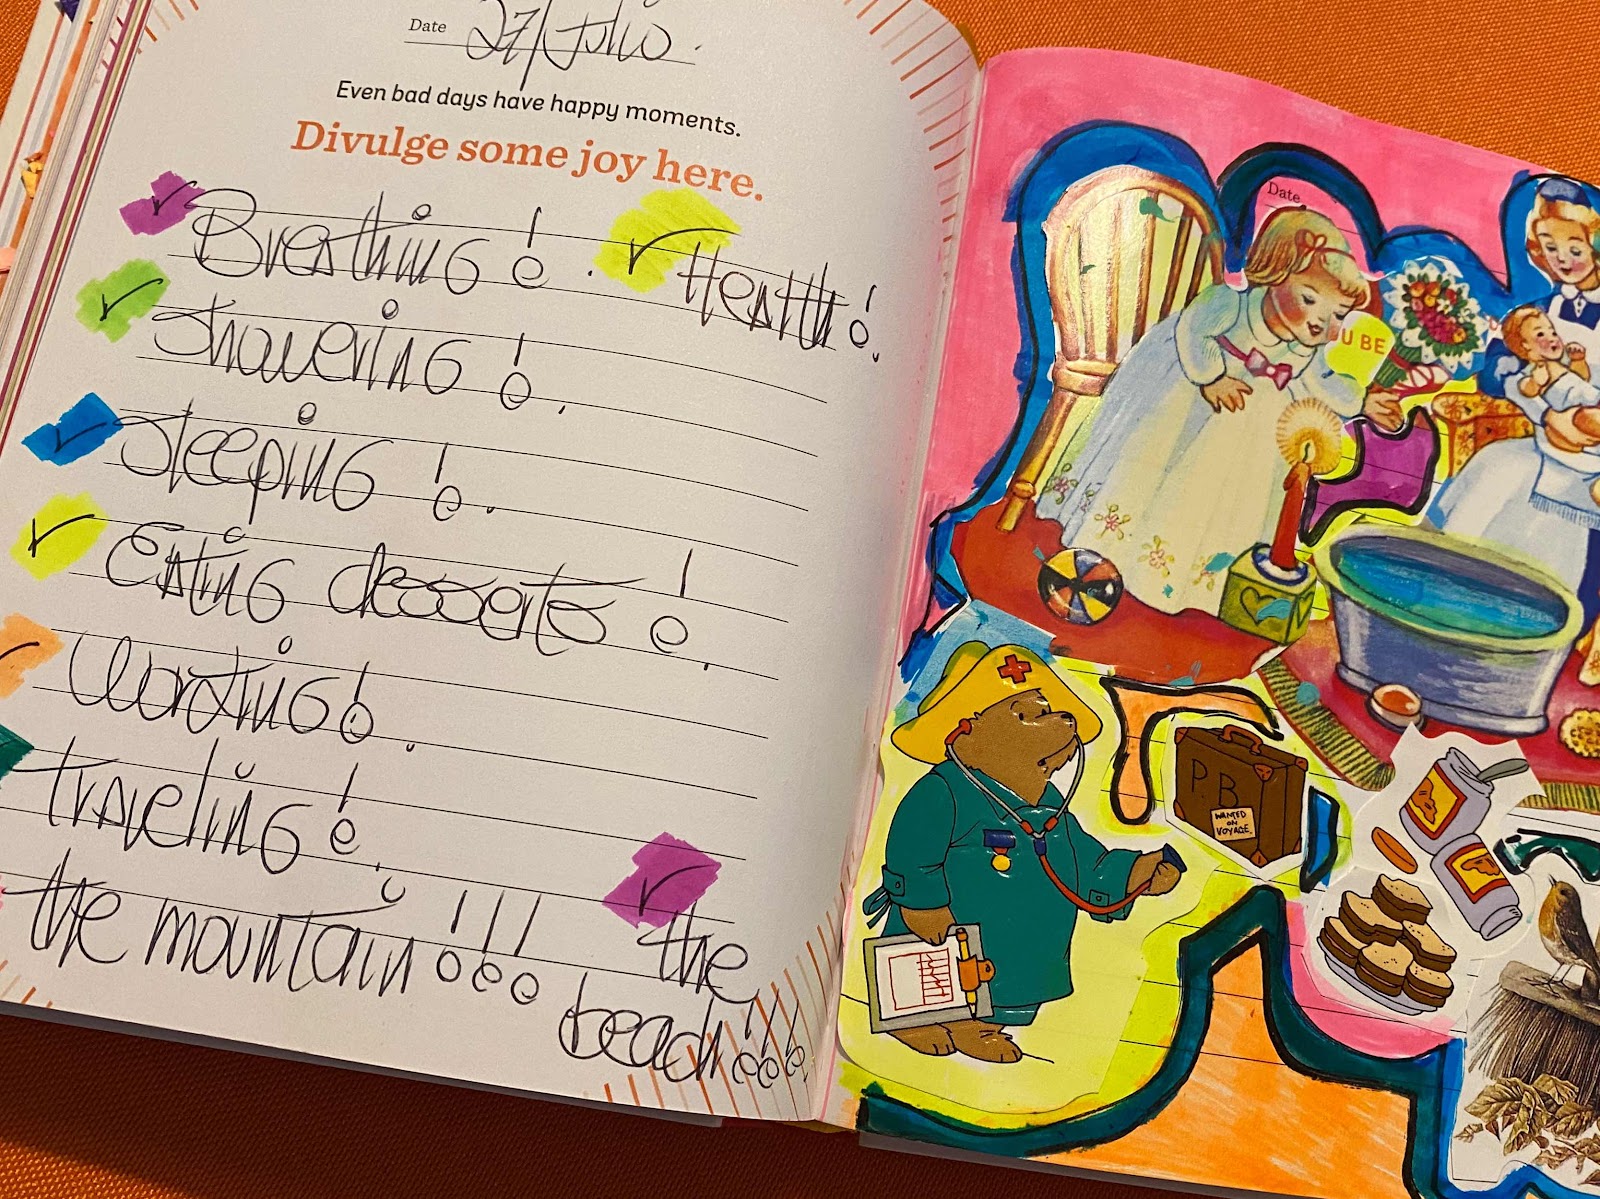 Date 27/Julio.
Even bad days have happy moments.
Divulge some joy here.
Breathing!. Health!
Showering!.
Sleeping!.
Eating desserts!.
traveling!.
the mountain!!!
the
beach!!!
Date
U BE
P.B
WANTED
ON
VOYAGE